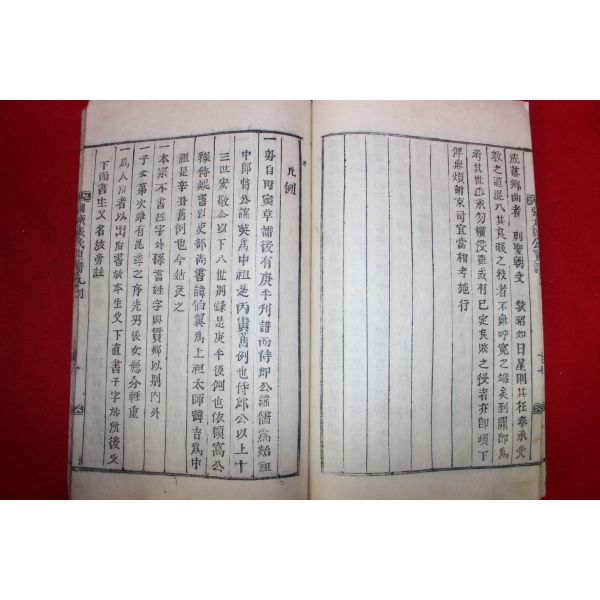 流落鄕曲者 列聖朝受 敎昭如日星則其在奉承受
敎之道混入其良賤之役者不無呼寃之端矣到關卽爲
考其世系永勿橫侵雖或有已定良賤之役者亦卽頉下
俾無煩訴京司宜當相考施行
凡例
一舊自丙寅草譜後有庚午刊譜而侍郞公諱儒爲始祖
中郞將公諱英爲中祖是丙寅舊例也侍郞公以上十
三世安敬公以下八世別錄是庚午後例也依顯窩公
孫傳疑書以吏部尙書諱伯翼爲上祖太師諱吉爲中
祖是辛丑舊例也今姑從之
一本宗不書姓字外孫書姓字與貫鄕以別內外
一子女第次雖有昆季之序先男後女懸分輕重
一爲人后者以出后書於本生父下直書子字於所後父
下而書生父名於旁註